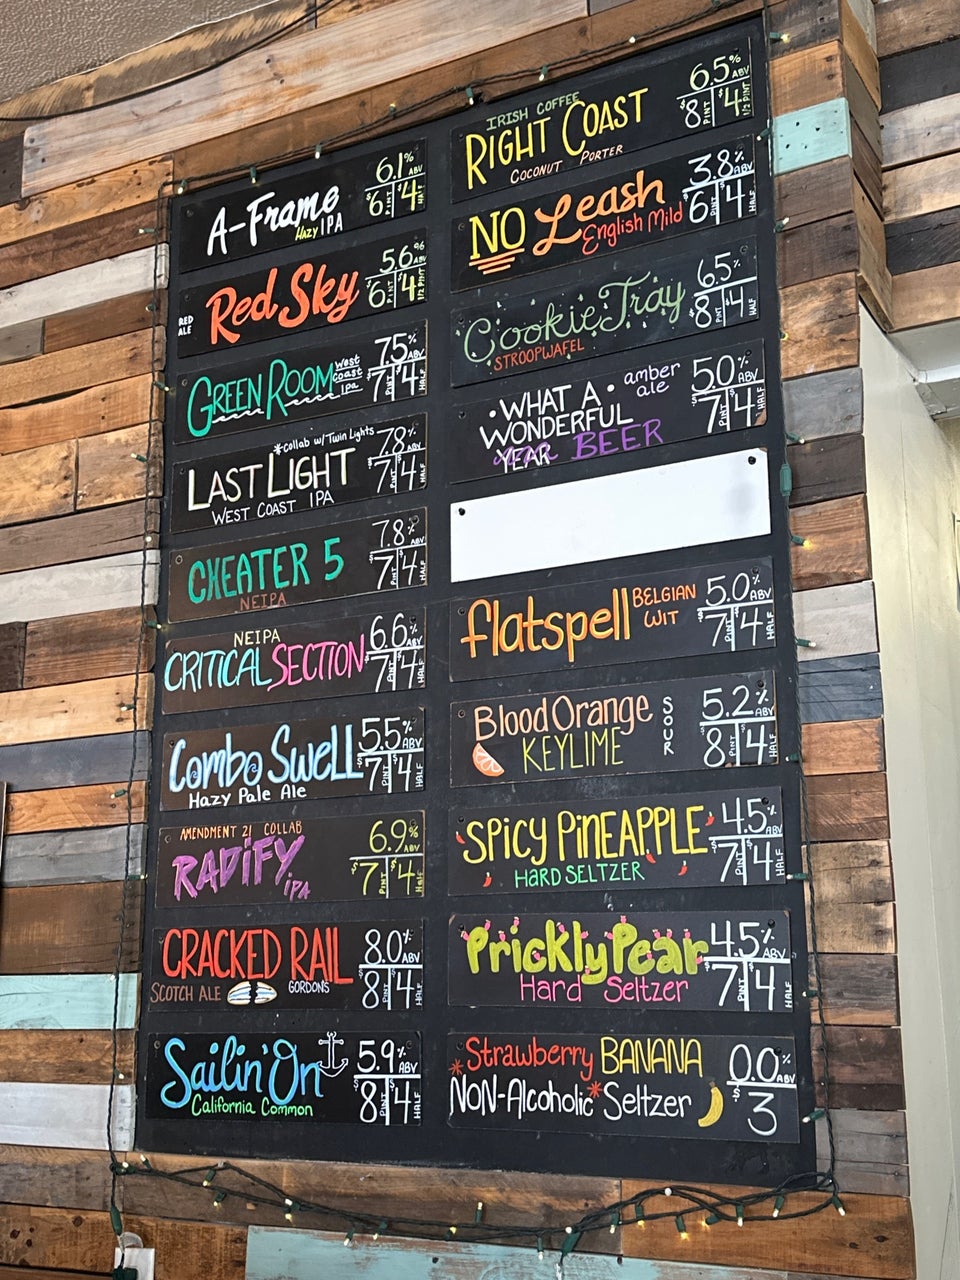 A-Frame
Hazy IPA
6.1% ABV
$6 PINT $4 HALF
RED ALE
Red Sky
5.6%
$6 PINT $4 1/2 PINT
GREEN ROOM
West Coast IPA
7.5% ABV
$7 PINT $4 HALF
*collab w/ Twin Lights
LAST LIGHT
WEST COAST IPA
7.8% ABV
$7 PINT $4 HALF
CHEATER 5
NEIPA
7.8% ABV
$7 PINT $4 HALF
NEIPA
CRITICAL SECTION
6.6% ABV
$7 PINT $4 HALF
Combo Swell
Hazy Pale Ale
5.5% ABV
$7 PINT $4 HALF
AMENDMENT 21 COLLAB
RADiFY
iPA
6.9% ABV
$7 PINT $4 HALF
CRACKED RAIL
SCOTCH ALE
GORDON'S
8.0% ABV
$8 PINT $4 HALF
Sailin' On
California Common
5.9% ABV
$8 PINT $4 HALF
IRISH COFFEE
RIGHT COAST
COCONUT PORTER
6.5% ABV
$8 PINT $4 1/2 PINT
NO Leash
English Mild
3.8% ABV
$6 PINT $4 HALF
Cookie Tray
STROOPWAFEL
6.5% ABV
$8 PINT $4 HALF
• WHAT A •
WONDERFUL
YEAR BEER
amber ale
5.0% ABV
$7 PINT $4 HALF
flatspell
BELGIAN WIT
5.0% ABV
$7 PINT $4 HALF
Blood Orange
KEYLIME
SOUR
5.2% ABV
$8 PINT $4 HALF
SPICY PiNEAPPLE
HARD SELTZER
4.5% ABV
$7 PINT $4 HALF
Prickly Pear
Hard Seltzer
4.5% ABV
$7 PINT $4 HALF
*Strawberry BANANA
NON-Alcoholic* Seltzer
0.0% ABV
$3